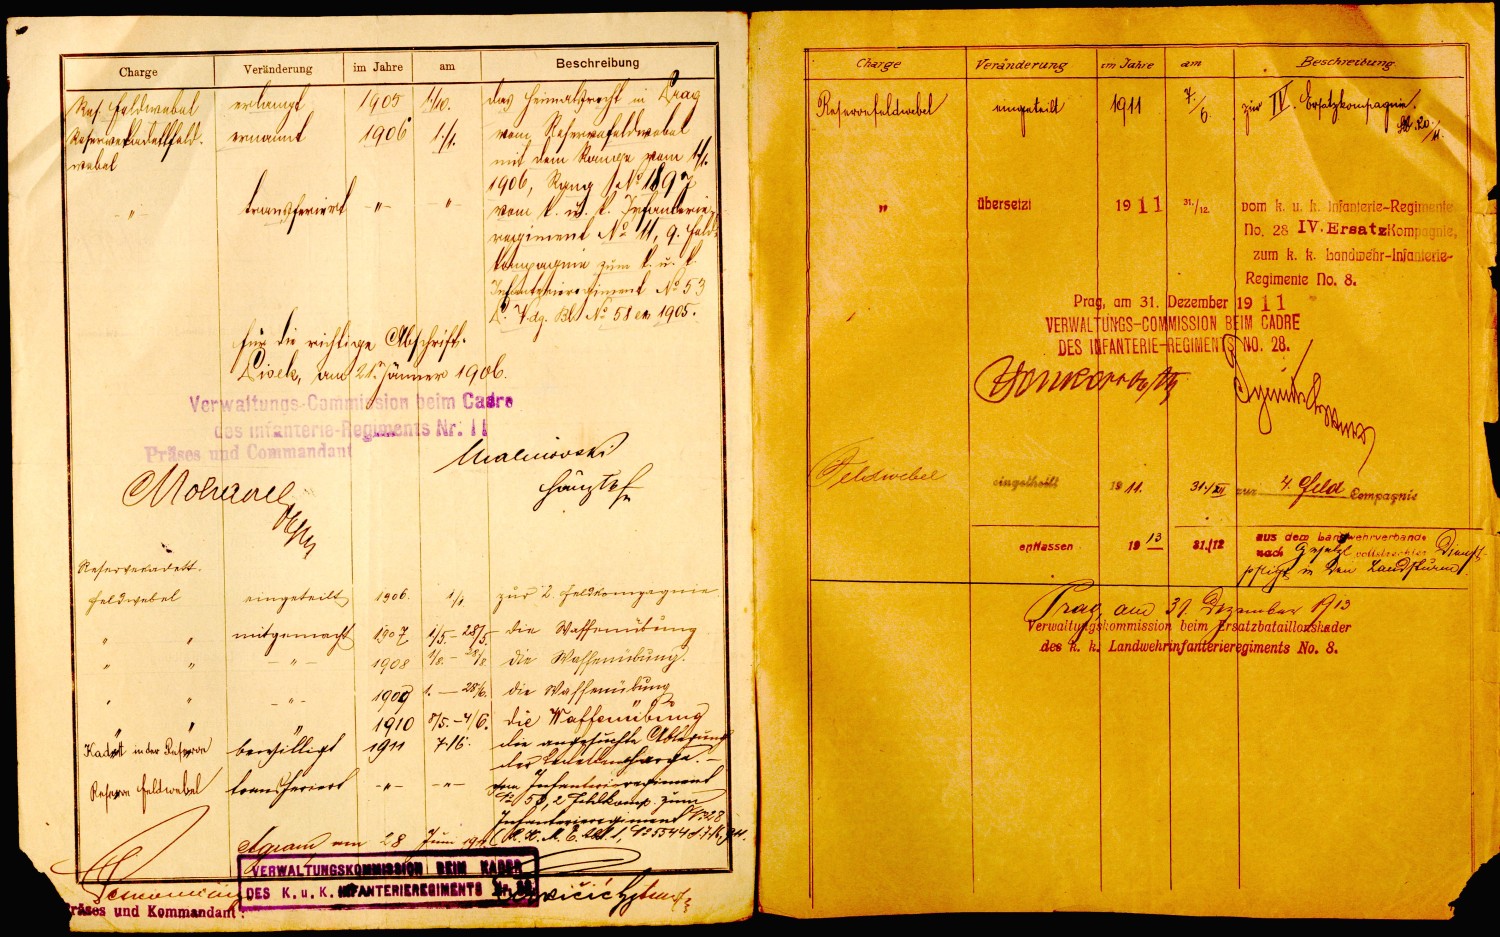 Charge Veränderung im Jahre am Beschreibung
Res. Feldwebel erlangt 1905 1/10. das Heimatsrecht in Prag
Reservekadettfeld- ernannt 1906 1./1. vom Reservefeldwebel
webel mit dem Range vom 1/1.
1906, Rang No 1897
-"- transferiert -"- -"- vom k. u. k. Infanterie-
regiment No 11, 9. Feld-
kompagnie zum k. u. k.
Infanterieregiment No 53
Vdg. Bl. No 58 ex 1905.
für die richtige Abschrift:
Pisek, am 21. Jänner 1906.
Verwaltungs-Commission beim Cadre
des Infanterie-Regiments Nr. 11
Präses und Commandant
Malinovski
Hauptm
Reservekadett-
feldwebel eingeteilt 1906. 1/1. zur 2. Feldkompagnie
" " mitgemacht 1907 1/5.-28/5. die Waffenübung
" " -"- 1908 1/8.-28/8. die Waffenübung.
" " -"- 1909 1.-28/6. die Waffenübung
" " 1910 8/5.-4/6. die Waffenübung
Kadett in der Reserve bewilligt 1911 7./6. die angesuchte Ablegung
der Kadettencharge.-
Reserve Feldwebel transferiert -"- -"- vom Infanterieregiment
No 53, 2 Feldkomp. zum
Infanterieregiment No 28
Agram, am 28 Juni 1911
VERWALTUNGSKOMMISSION BEIM KADER
DES K. u. K. INFANTERIEREGIMENTS Nr. 53
Präses und Kommandant:
Charge Veränderung im Jahre am Beschreibung
Reservefeldwebel eingeteilt 1911 7./6. zur IV. Ersatzkompagnie.
" übersetzt 1911 31./12. vom k. u. k. Infanterie-Regimente
No. 28 IV. Ersatz Kompagnie,
zum k. k. Landwehr-Infanterie-
Regimente No. 8.
Prag, am 31. Dezember 1911
VERWALTUNGS-COMMISSION BEIM CADRE
DES INFANTERIE-REGIMENTS NO. 28.
Feldwebel eingetheilt 1911. 31./XII zur 4. Feld Compagnie
entlassen 1913 31./12 aus dem Landwehrverbande
nach Gesetzl vollstreckter Dienst-
pflicht in den Landsturm.
Prag, am 31. Dezember 1913
Verwaltungskommission beim Ersatzbataillonskader
des k. k. Landwehrinfanterieregiments No. 8.